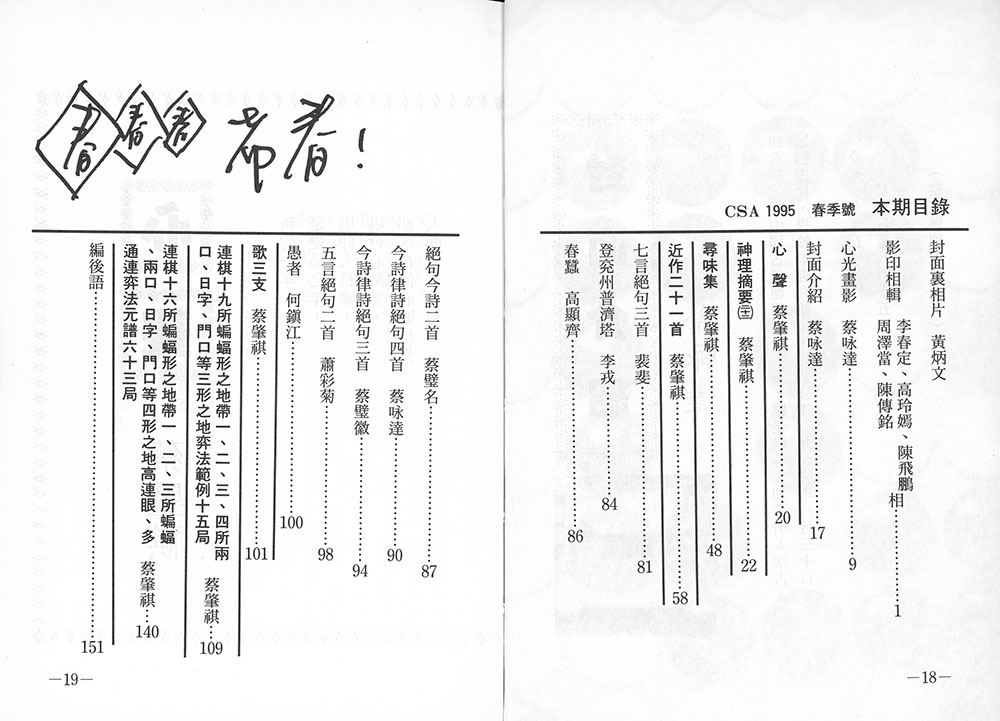 CSA 1995 春季號 本期目錄
封面裏相片 黃炳文
影印相輯 李春定、高玲嫣、陳飛鵬
周澤當、陳傳銘 相……1
心光畫影 蔡咏達……9
封面介紹 蔡咏達……17
心聲 蔡肇祺……20
神理摘要㊂ 蔡肇祺……22
尋味集 蔡肇祺……48
近作二十一首 蔡肇祺……58
七言絕句三首 裴斐……81
登兗州普濟塔 李戎……84
春蠶 高顯齊……86
—18—
春 春 春 春!
絕句今詩二首 蔡璧名……87
今詩律詩絕句四首 蔡咏達……90
今詩律詩絕句三首 蔡璧徽……94
五言絕句二首 蕭彩菊……98
愚者 何鎮江……100
歌三支 蔡肇祺……101
連棋十九所蝙蝠形之地帶一、二、三、四所兩
口、日字、門口等三形之地弈法範例十五局 蔡肇祺…109
連棋十六所蝙蝠形之地帶一、二、三所蝙蝠
、兩口、日字、門口等四形之地高連眼、多
通連弈法元譜六十三局 蔡肇祺…140
編後語……151
—19—